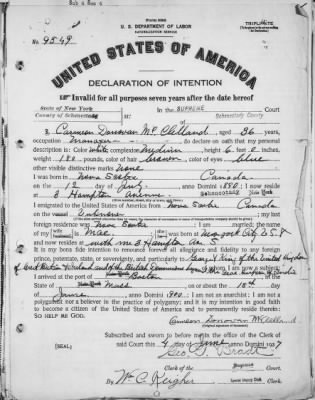 U. S. DEPARTMENT OF LABOR
NATURALIZATION SERVICE
TRIPLICATE
No. 9549
UNITED STATES OF AMERICA
DECLARATION OF INTENTION
Invalid for all purposes seven years after the date hereof
State of New York
In the SUPREME Court
County of Schenectady
Schenectady County
I, Donovan, aged 36 years,
occupation Manager, do declare on oath that my personal
description is: Color white, complexion medium, height 6 feet 2 inches,
weight 180 pounds, color of hair brown, color of eyes blue
other visible distinctive marks none
I was born in Nova Scotia Canada
on the 12 day of July, anno Domini 1890; I now reside
at Hampton Avenue Schenectady New York
I emigrated to the United States of America from Nova Scotia Canada
on the Unknown; my last
foreign residence was Nova Scotia; I am married; the name of my
wife is Mae; she was born at New York City U S A
and now resides at with me Hampton Ave
It is my bona fide intention to renounce forever all allegiance and fidelity to any foreign
prince, potentate, state, or sovereignty, and particularly to George V King of the United Kingdom
of Great Britain Ireland and of the British Dominions, of whom I am now a subject;
I arrived at the port of Boston, in the
State of Mass, on or about the 15th day
of June, anno Domini; I am not an anarchist; I am not a
polygamist nor a believer in the practice of polygamy; and it is my intention in good faith
to become a citizen of the United States of America and to permanently reside therein:
SO HELP ME GOD.
Donovan McClelland
(Original signature of declarant)
Subscribed and sworn to before me in the office of the Clerk of
said Court this day of June, anno Domini 1927
[SEAL]
Geo
Clerk of the Supreme Court.
By Wm C, Clerk.